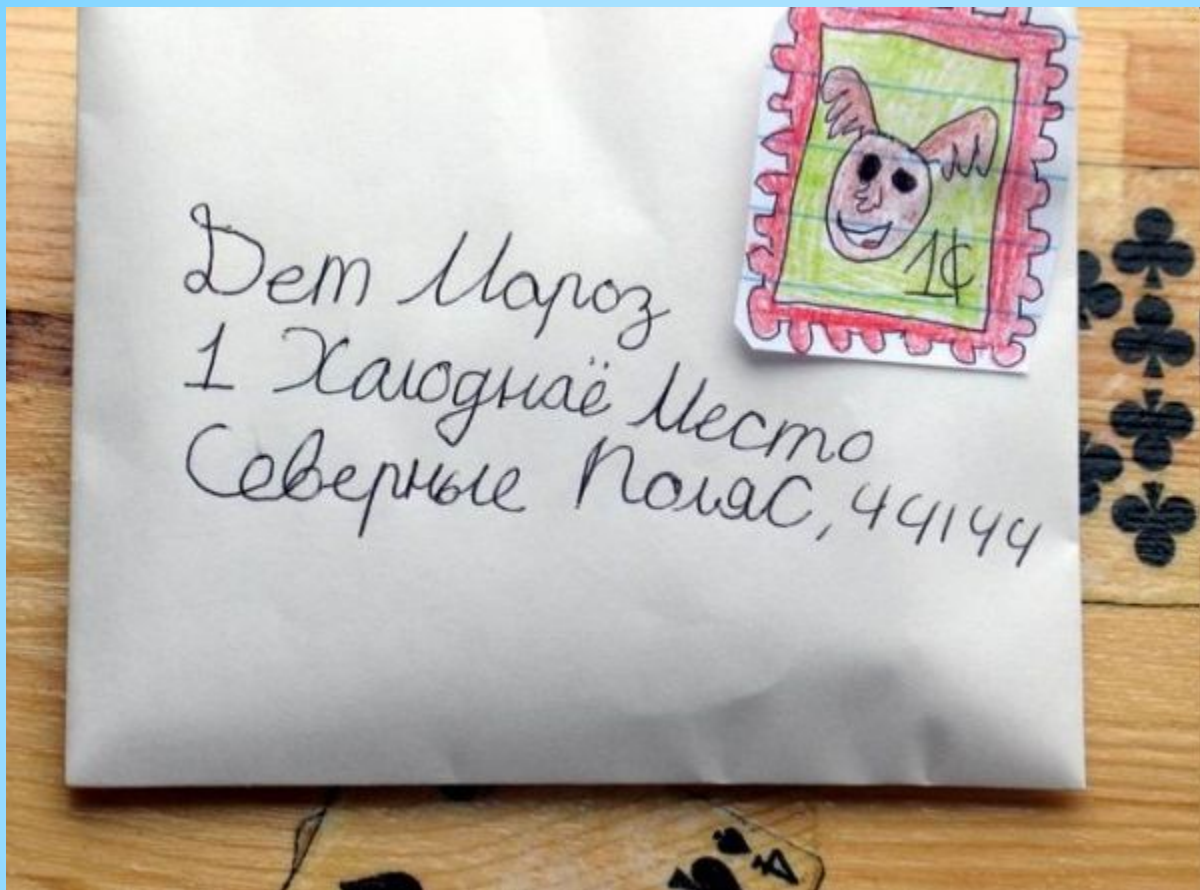 1¢
Дет Мороз
1 Халоднаё Место
Северные Поляс, 44144
4